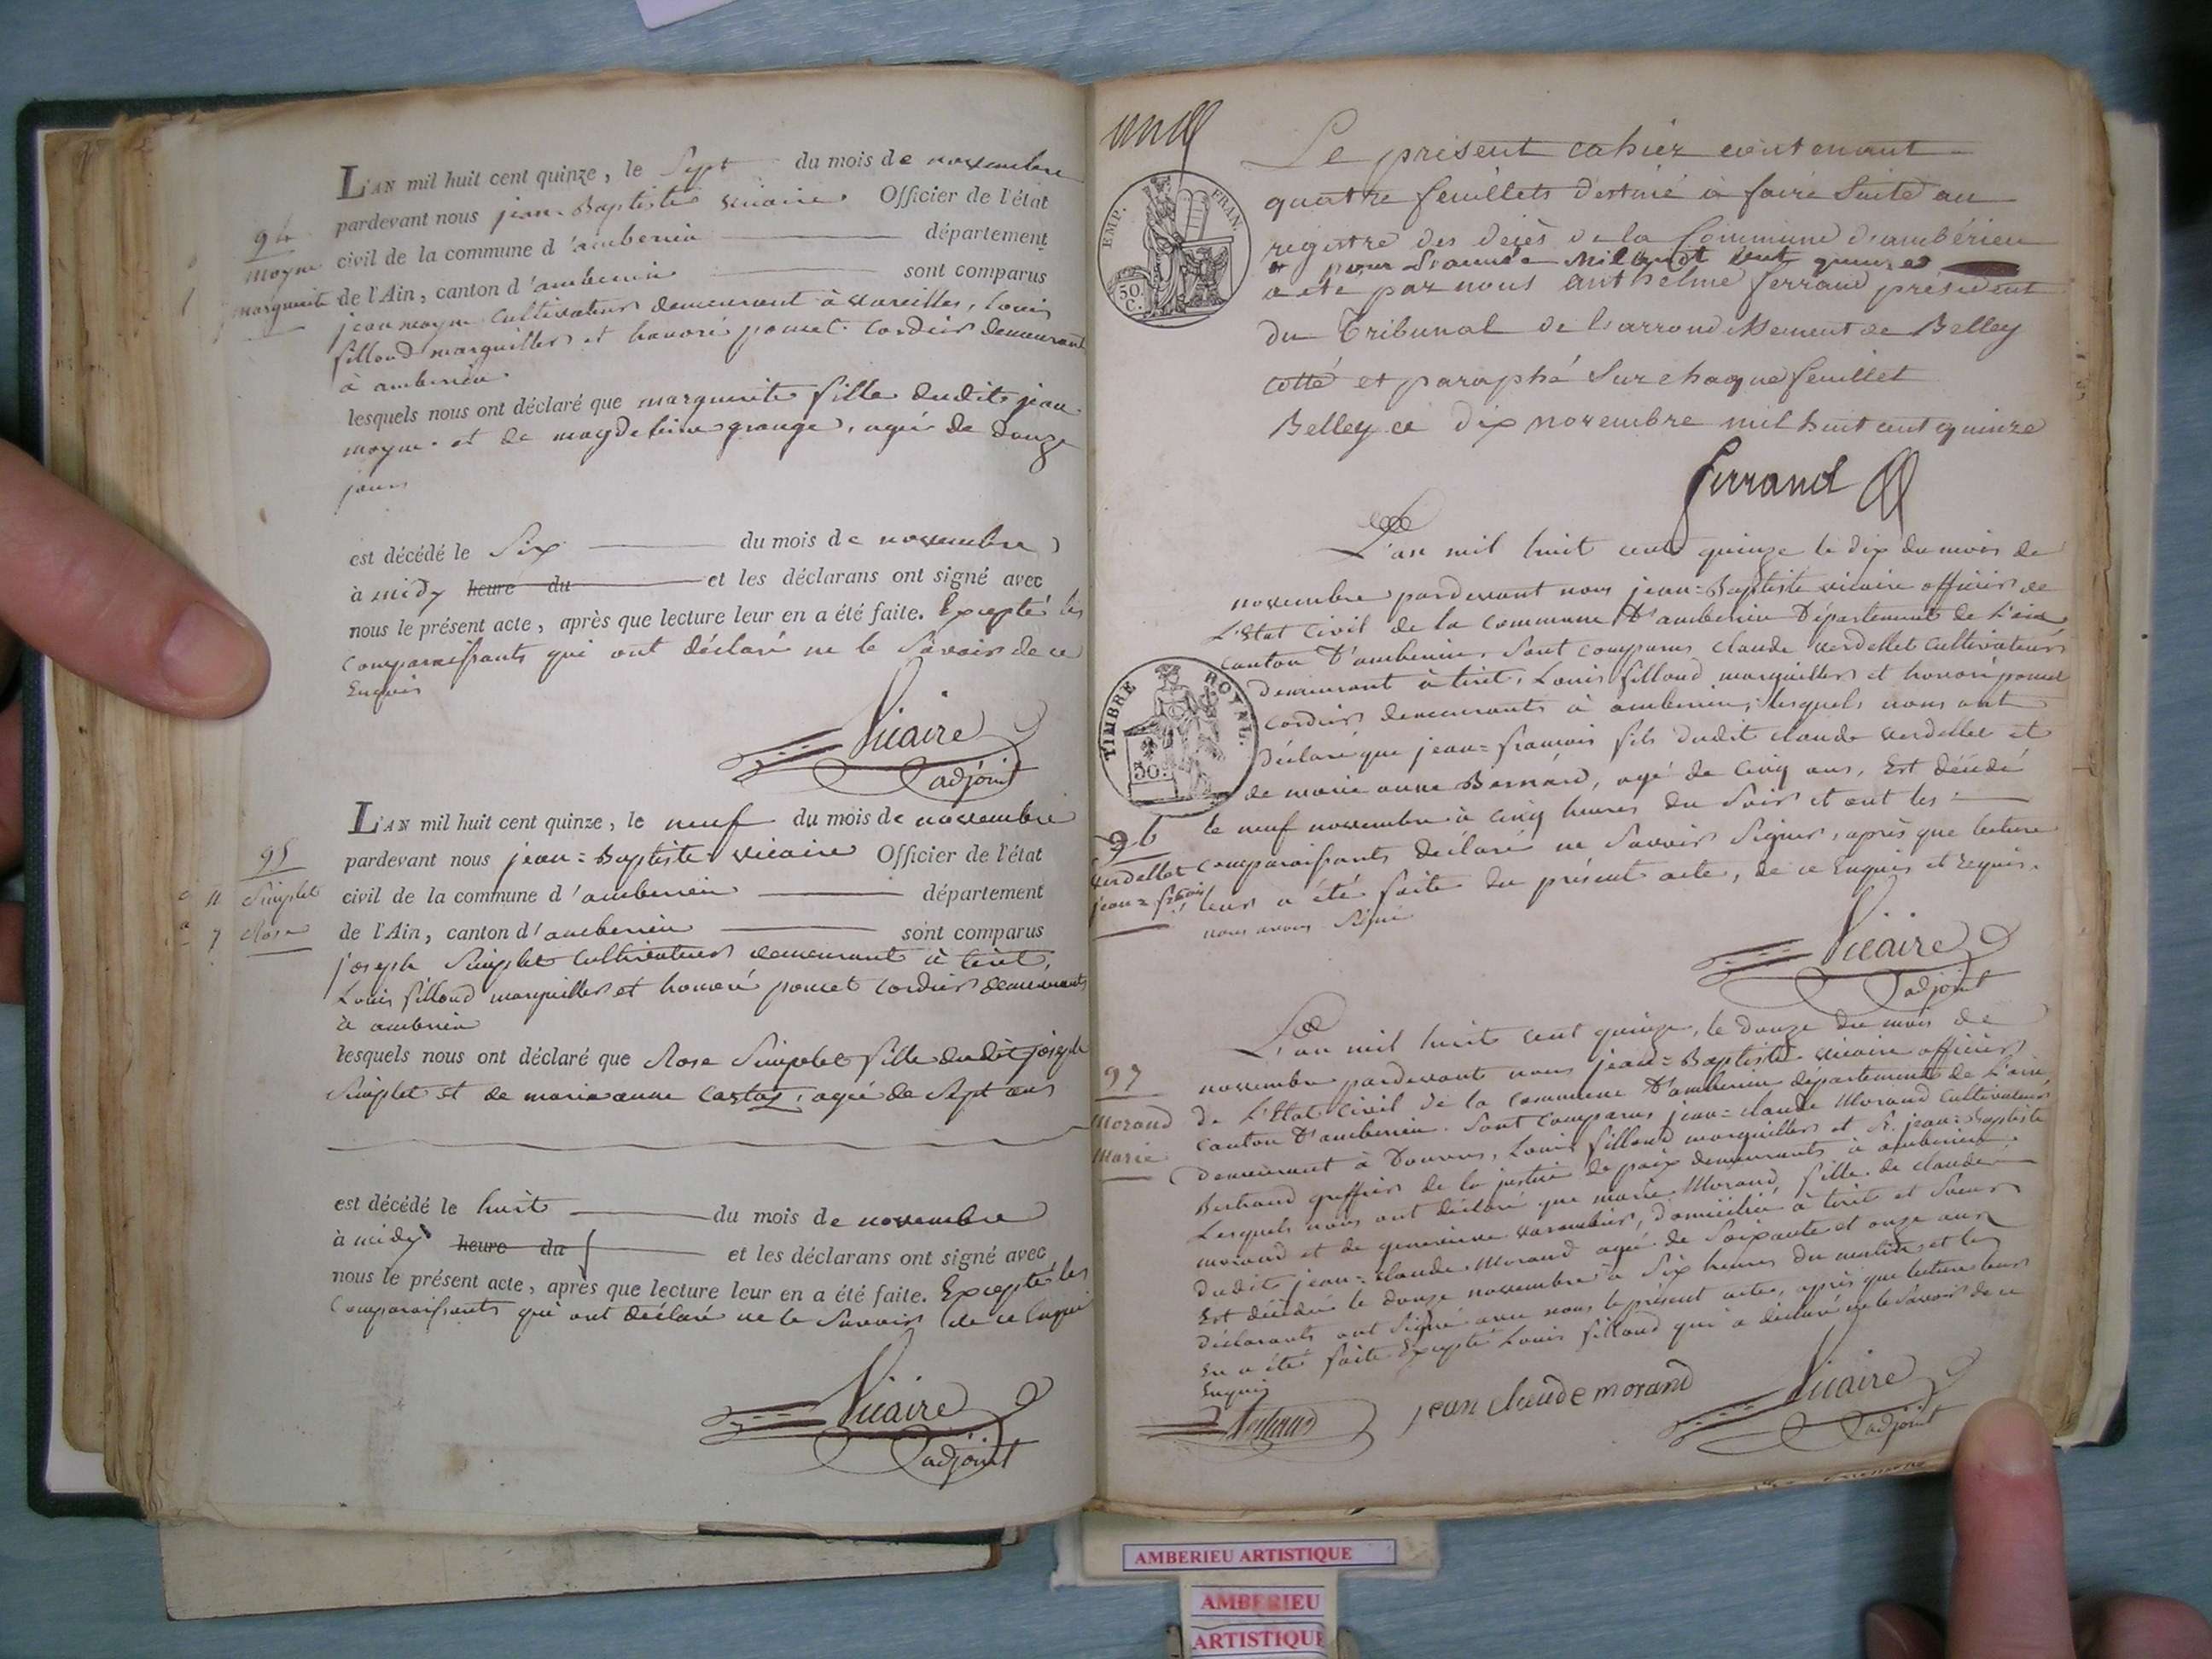 94
moyne
marguerite
L'AN mil huit cent quinze, le Sept du mois de novembre
pardevant nous jean-Baptiste vicaire Officier de l'état
civil de la commune d'amberieu département
de l'Ain, canton d'amberieu sont comparus
jean moyne cultivateur demeurant à vareilles, louis
filloud marguiller et honoré poncet cordier demeurant
à amberieu
lesquels nous ont déclaré que marguerite fille dudit jean
moyne et de magdeleine grange, agée de douze
jours
est décédé le Six du mois de novembre
à midy heure du et les déclarans ont signé avec
nous le présent acte, après que lecture leur en a été faite. Excepté les
comparaissants qui ont déclaré ne le Savoir de ce
Enquis
Vicaire
adjoint
95
Simplet
Rose
L'AN mil huit cent quinze, le neuf du mois de novembre
pardevant nous jean=Baptiste vicaire Officier de l'état
civil de la commune d'amberieu département
de l'Ain, canton d'amberieu sont comparus
joseph Simplet cultivateur demeurant à tiret,
Louis filloud marguiller et honoré poncet cordier demeurants
à amberieu
lesquels nous ont déclaré que Rose Simplet fille dudit joseph
Simplet et de marie anne , agée de Sept ans
est décédé le huit du mois de novembre
à midy heure du et les déclarans ont signé avec
nous le présent acte, après que lecture leur en a été faite. Excepté les
Comparaissants qui ont déclaré ne le Savoir de ce Enquis
Vicaire
adjoint
EMP. FRAN.
50 C.
Le présent cahier contenant
quatre feuillets destiné à faire Suite au
registre des décès de la Commune d'ambérieu
pour L'année Mil huit cent quinze
a été par nous anthelme ferrand président
du Tribunal de L'arrondissement de Belley
cotté et paraphé Sur chaque feuillet
Belley ce dix novembre mil huit cent quinze
ferrand
L'an mil huit cent quinze le dix du mois de
novembre pardevant nous jean=Baptiste vicaire officier de
L'Etat Civil de la commune D'amberieu Département de L'ain
Canton D'amberieu, Sont comparus claude verdellet cultivateur
Demeurant à tiret, Louis filloud marguiller et honoré poncet
cordier demeurants à amberieu, lesquels nous ont
Déclaré que jean=francois fils dudit claude verdellet et
de marie anne Bernard, agé de cinq ans, Est décédé
le neuf novembre à cinq heures du Soir et ont les
comparaissants déclaré ne Savoir Signer, après que lecture
leur a été faite du présent acte, de ce Enquis et requis.
nous avons Signé
TIMBRE ROYAL.
50.
96
verdellet
jean=fcois
Vicaire
adjoint
97
Morand
Marie
L'an mil huit cent quinze, le douze du mois de
novembre pardevant nous jean=Baptiste vicaire officier
de L'Etat Civil de la commune D'amberieu département de L'ain
Canton D'amberieu. Sont Comparus jean=claude Morand cultivateur
demeurant à Douvres, Louis filloud marguiller et Sr. jean=Baptiste
Bertrand greffier de la justice de paix demeurants à amberieu
Lesquels nous ont déclaré que marie Morand, fille de claude
morand et de genevieve , domiciliée à tiret et Soeur
dudit jean=claude Morand agée de Soixante et onze ans
Est décédée le douze novembre à Six heures du matin et les
déclarants ont Signé avec nous le présent acte, après que lecture leur
En a été faite Excepté Louis filloud qui a déclaré ne le Savoir de ce
Enquis
Bertrand
jean claude morand
Vicaire
adjoint
AMBERIEU ARTISTIQUE
AMBERIEU
ARTISTIQUE